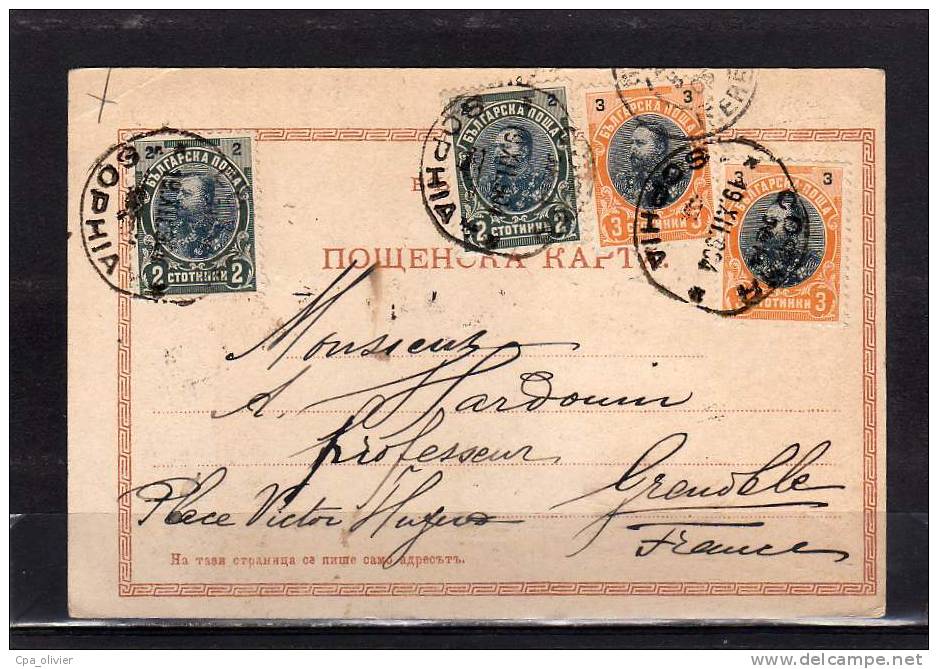 БЪЛГАРСКА ПОЩА
2 2
2 СТОТИНКИ 2
СОФИЯ
БЪЛГАРСКА ПОЩА
2
2 СТОТИНКИ 2
СОФИЯ
БЪЛГАРСКА ПОЩА
3 3
3 СТОТИНКИ 3
SOPHIA
19.XII.904
БЪЛГАРСКА ПОЩА
3 3
СТОТИНКИ 3
ПОЩЕНСКА КАРТА.
Monsieur
A. Hardouin
professeur
Place Victor Hugo
Grenoble
France
На тази страница се пише само адресътъ.
Cpa_olivier
delcampe.net